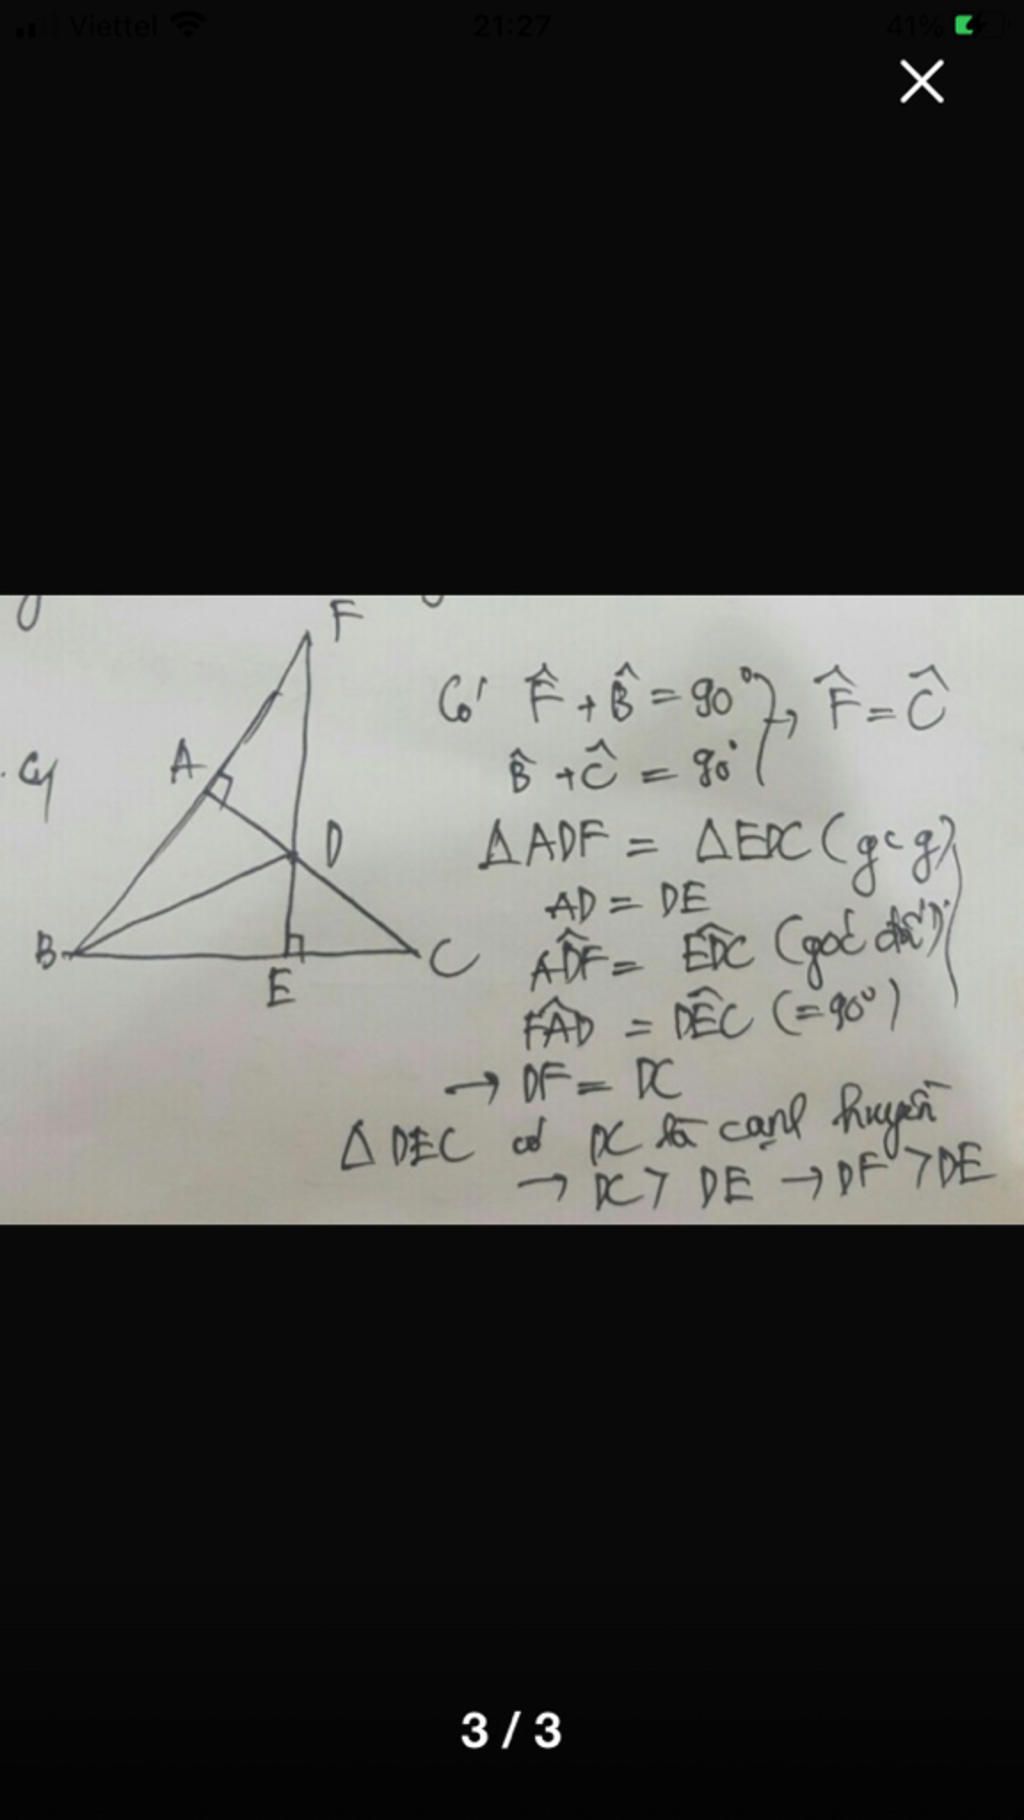 Viettel 21:27 41%
F
A
D
B
E
C
Có F̂ + B̂ = 90° → F̂ = Ĉ
B̂ + Ĉ = 90°
ΔADF = ΔEDC (gcg)
AD = DE
ADF̂ = EDC (góc đđ)
FAD = DEC (=90°)
→ DF = DC
Δ DEC có DC là cạnh huyền
→ DC > DE → DF > DE
3 / 3